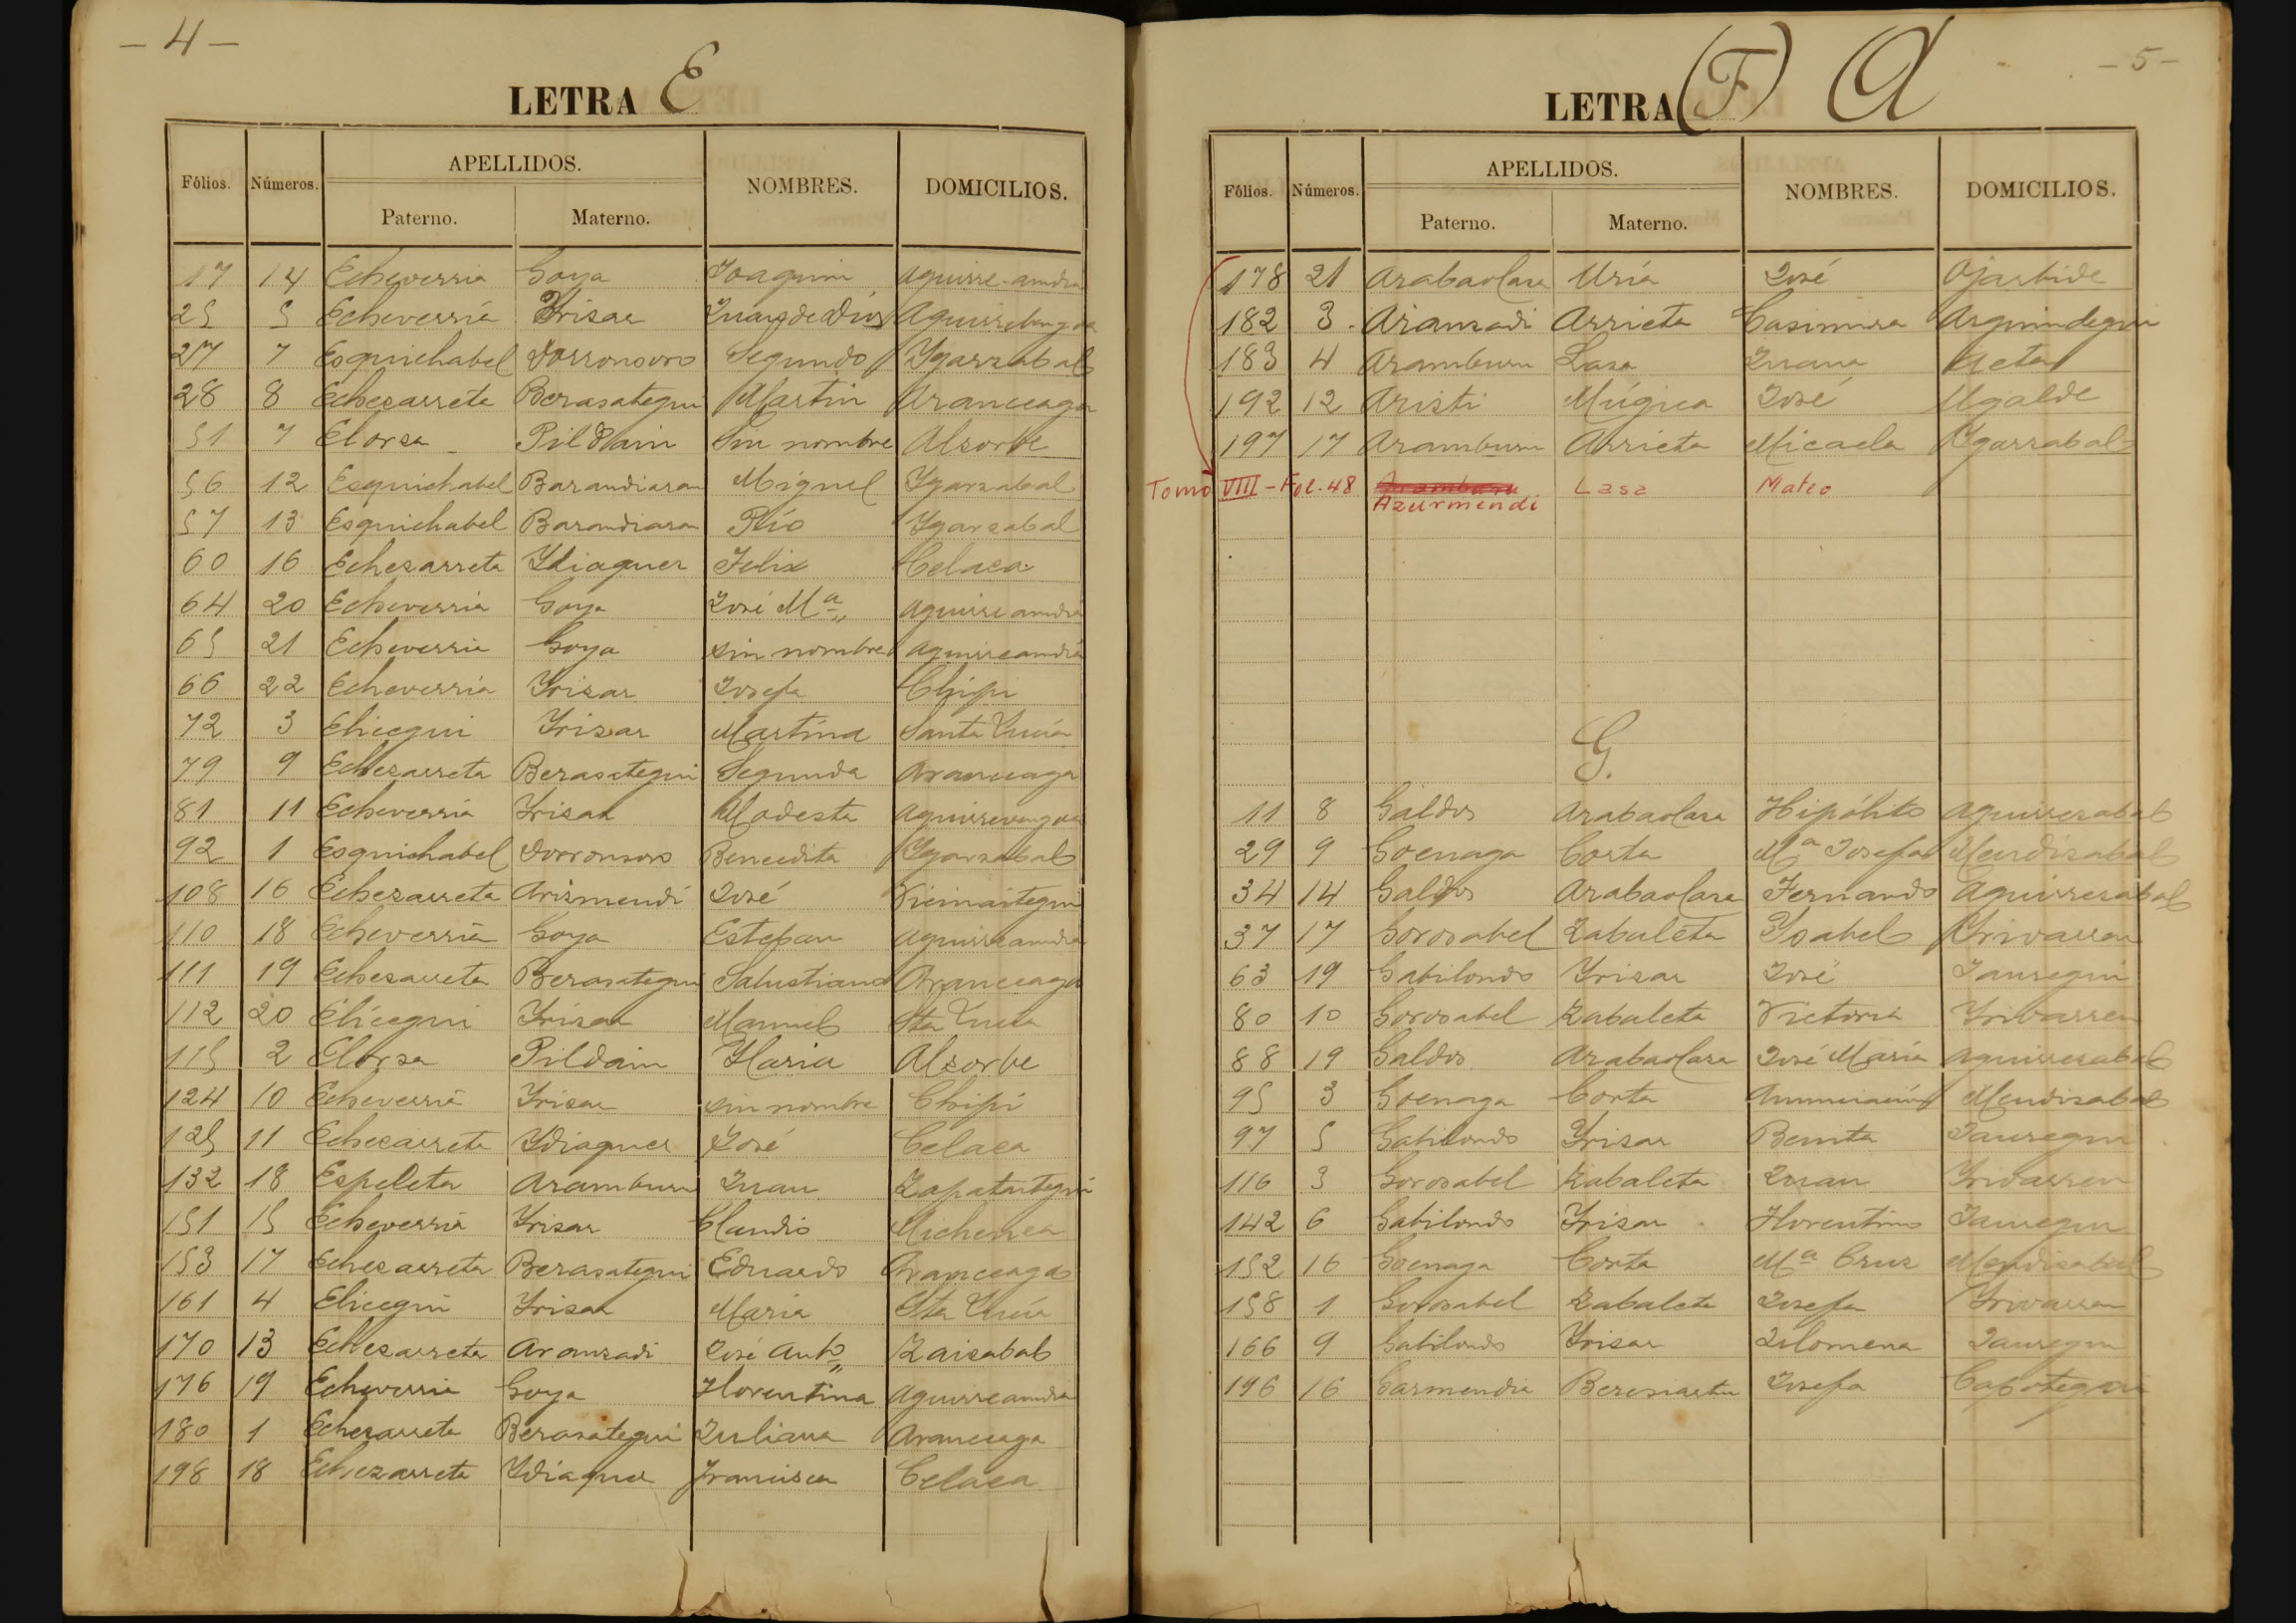 – 4 –
LETRA E
Fólios. Números. APELLIDOS. Paterno. Materno. NOMBRES. DOMICILIOS.
17 14 Echeverria Goya Joaquin Aguirre-amdia
25 5 Echeverria Yrisar Juan de Dios
27 7 Esquichabel Dorronsoro Segundo Ygarzabal
28 8 Echezarreta Berasategui Martin Aranceaga
51 7 Elorza Pildain Sin nombre Alsorbe
56 12 Esquichabel Barandiaran Miguel Ygarzabal
57 13 Esquichabel Barandiaran Pío Ygarzabal
60 16 Echezarreta Ydiaquez Felix Celaea
64 20 Echeverria Goya José Mª Aguirreamdia
65 21 Echeverria Goya sin nombre Aguirreamdia
66 22 Echeverria Yrisar Josefa Chipi
72 3 Elicegui Yrisar Martina Santa Lucía
79 9 Echezarreta Berasategui Segunda Aranceaga
81 11 Echeverria Yrisar Modesta
92 1 Esquichabel Dorronsoro Benedita Ygarzabal
108 16 Echezarreta Arismendi José
110 18 Echeverria Goya Esteban Aguirreamdia
111 19 Echezarreta Berasategui Salustiano Aranceaga
112 20 Elicegui Yrisar Manuel Sta Lucía
115 2 Elorza Pildain Ylaria Alsorbe
124 10 Echeverria Yrisar sin nombre Chipi
125 11 Echezarreta Ydiaquez José Celaea
132 18 Espeleta Aramburu Juan Zapatategui
151 15 Echeverria Yrisar Claudio
153 17 Echezarreta Berasategui Eduardo Aranceaga
161 4 Elicegui Yrisar Maria Sta Lucía
170 13 Echezarreta Aranzadi José Antº Zaizabal
176 19 Echeverria Goya Florentina Aguirreamdia
180 1 Echezarreta Berasategui Juliana Aranceaga
198 18 Echezarreta Ydiaquez Francisca Celaea
– 5 –
LETRA (F) A
Fólios. Números. APELLIDOS. Paterno. Materno. NOMBRES. DOMICILIOS.
178 21 Arabaolaza Uría José Ojarbide
182 3 Aranzadi Arrieta Casimira Arguindegui
183 4 Aramburu Lasa Juana
192 12 Aristi Múgica José Ugalde
197 17 Aramburu Arrieta Micaela Ygarzabal
Tomo VIII – Fol. 48 Aramburu Lasa Mateo
Azurmendi
G.
11 8 Galdos Arabaolaza Hipólito Aguirrezabal
29 9 Goenaga Corta Mª Josefa Mendizabal
34 14 Galdos Arabaolaza Fernando Aguirrezabal
37 17 Gorosabel Zabaleta Ysabel Yrivarren
63 19 Gabilondo Yrisar José Jauregui
80 10 Gorosabel Zabaleta Victoria Yrivarren
88 19 Galdos Arabaolaza José María Aguirrezabal
95 3 Goenaga Corta Anunciación Mendizabal
97 5 Gabilondo Yrisar Benita Jauregui
116 3 Gorosabel Zabaleta Juan Yrivarren
142 6 Gabilondo Yrisar Florentino Jauregui
152 16 Goenaga Corta Mª Cruz Mendizabal
158 1 Gorosabel Zabaleta Josefa Yrivarren
166 9 Gabilondo Yrisar Filomena Jauregui
196 16 Garmendia Beresiartu Josefa